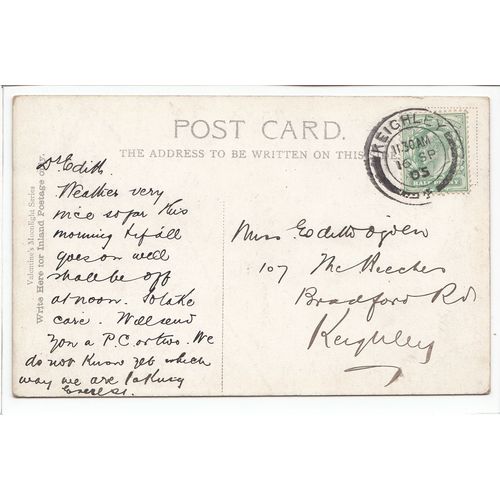 POST CARD.
THE ADDRESS TO BE WRITTEN ON THIS
Valentine's Moonlight Series
Write Here for Inland Postage only.
KEIGHLEY
11.30 AM
16 SP
05
HALF PENNY
Dr Edith
Weather very
nice so far this
morning & if all
goes on well
shall be off
at noon. So take
care. Will send
you a P.C. or two. We
do not know yet which
way we are taking
Miss Edith Ogden
107 The Beeches
Bradford Rd
Keighley